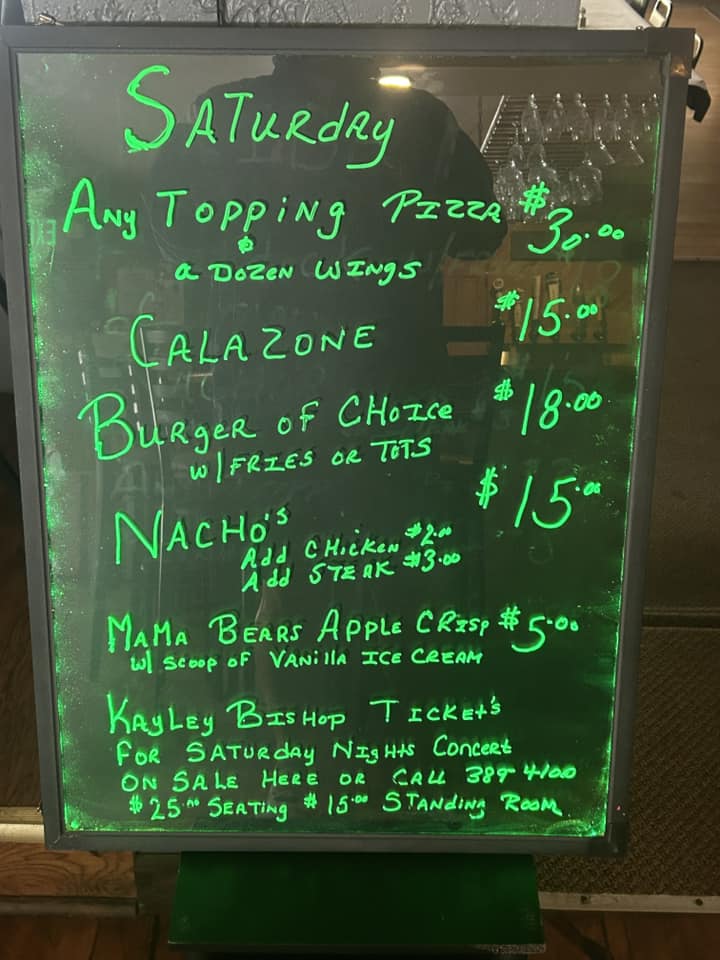 SATURdAy
ANy TOPPiNg PIZZA $30.00
&
a DOZEN WINgS
CALAZONE $15.00
BURgER OF CHOICE $18.00
w/ FRIES OR TOTS
NACHO'S $15.00
Add CHicKEN $2.00
Add STEAK $3.00
MAMA BEARS APPLE CRISP $5.00
w/ Scoop OF VANillA ICE CREAM
KAyLEy BISHOP TICKEt'S
FOR SATURdAY NIgHtS CONCERt
ON SALE HERE OR CALL 389-4100
$25.00 SEATINg $15.00 STANdiNg ROOM